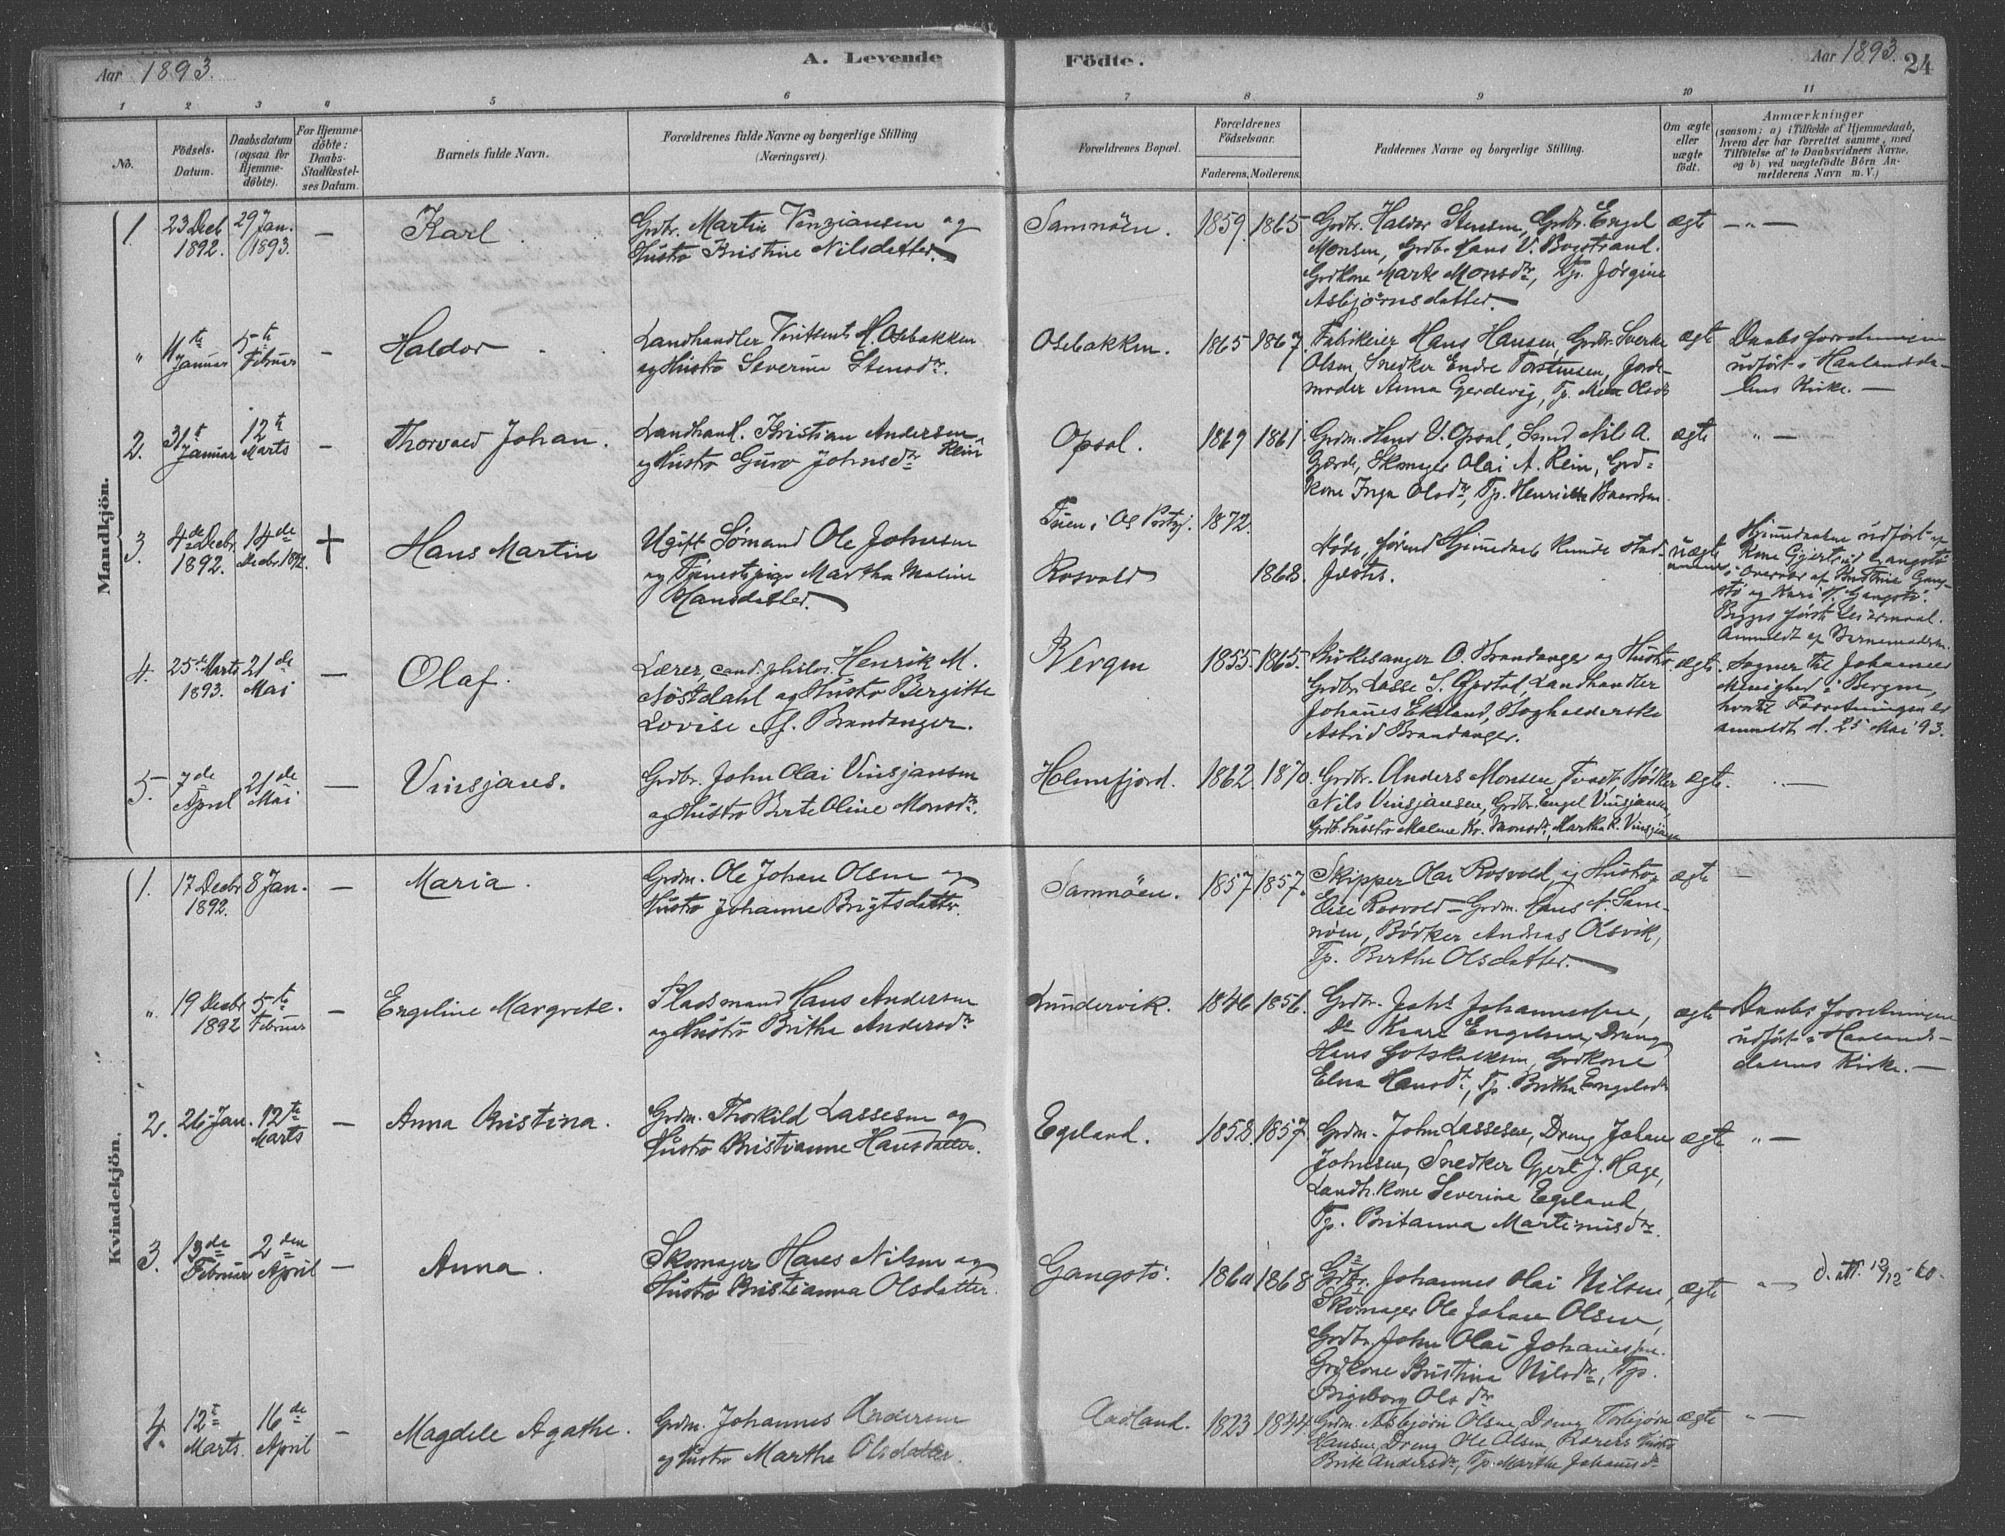 Aar 1893.
A. Levende Födte.
Aar 1893.
24
1 2 3 4 5 6 7 8 9 10 11
No.
Födsels-Datum.
Daabsdatum (ogsaa for Hjemme-döbte).
For Hjemme-döbte: Daabs-Stadfæstel-ses Datum.
Barnets fulde Navn.
Forældrenes fulde Navne og borgerlige Stilling (Næringsvei).
Forældrenes Bopæl.
Forældrenes Födselsaar.
Faderens. Moderens.
Faddernes Navne og borgerlige Stilling.
Om ægte eller uægte födt.
Anmærkninger
(saasom: a) i Tilfælde af Hjemmedaab, hvem der har forrettet samme, med Tilföielse af to Daabsvidners Navne, og b) ved uægtefödte Börn An-melderens Navn m. V.)
Mandkjön.
1. 23 Decb 1892. 29 Jan. 1893. — Karl
Grdbr. Martin Vinsjansen og
Hustro Kristine Nilsdatter.
Samnöen. 1859. 1865.
Grdbr. Haldor Stensen, Grdbr. Engel
Monsen, Grdbr. Hans V.
Grdkone Marte Monsdtr, Tp. Jörgine
Asbjörnsdatter
ægte — " —
" 4te Januar 5te Februar — Haldor
Landhandler H. Osebakken
og Hustro Severine Stensdtr.
Osebakken. 1865 1867
Hans Hansen, Grdbr. Sverke
Olsen, Snedker Endre Torstensen, Jorde-
moder Anna Gjerdevig, Tp.
ægte
Daabsforretningen
udfört i Haalandsda-
lens Kirke. —
2. 31t Januar 12te Marts — Thorvald Johan.
Landhandl. Kristian Andersen Rein
og Hustro Guro Johnsdtr
Opsal. 1869 1861
Grdm. Hans V. Opsal, Nils A.
Gjerde, Skomager Olai A. Rein, Grd-
kone Inga Olsdtr, Tp. Henriette Baardsen
ægte " —
3. 4de Decbr. 1892. 14de Decbr. 1892. + Hans Martin
Ugift Sömand Ole Johnsen
og Tjenestepige Martha Maline
Hansdatter.
Tuen i Os Prstgj. 1872.
Rosvold 1868.
Döde, förend Hjemdaab kunde stad-
fæstes.
uægte
Hjemmedaaben udfört af
Kone Gjertrud Gangstö
i Overvær af Kristine Gang-
stö og Kari J. Gangstö.
Begges förste Leiermaal.
Anmeldt af Barnemoderen.
4. 25de Marts 1893. 21de Mai — Olaf.
Lærer, cand. philos. Henrik M.
Nöstdahl og Hustro Bergitte
Lovise f. Brandanger.
Bergen 1855. 1865.
Kirkesanger O. Brandanger og Hustro
Grdbr. Lasse S. Opstal, Landhandler
Johannes Ekeland, Bogholderske
Astrid Brandanger.
ægte.
Sogner til Johannes
Menighed i Bergen,
hvortil Forretningen er
anmeldt d. 25 Mai 93.
5. 7de April 21de Mai — Vinsjans.
Grdbr. John Olai Vinsjansen
og Hustro Berte Oline Monsdtr.
Holmefjord. 1862. 1870.
Grdbr. Anders Monsen Tvedt, Bödker
Nils Vinsjansen, Grdbr. Engel Vinsjansen,
Grdbr. Hustro Malene Kr. Monsdtr, Martha K. Vinsjansen
ægte. —
Kvindekjön.
1. 17 Decbr 1892. 8 Jan. — Maria.
Grdm. Ole Johan Olsen og
Hustro Johanne Brigtsdatter.
Samnöen. 1857 1857.
Skipper Olai Rosvold og Hustro
Elise Rosvold — Grdm. Hans N. Sam-
nöen, Bödker Andreas Olsvik,
Tp. Berthe Olsdatter.
ægte —
" 19 Decbr 1892 5te Februar — Engeline Margrete.
Pladsmand Hans Andersen
og Hustro Britha Andersdtr
Lundervik. 1846 1856.
Grdbr. Johs Johannessen,
Do Knare Engelsen, Dreng
Hans Gotskalksen, Grdkone
Elna Hansdtr, Tp. Britha Engelsdtr
ægte
Daabs forretningen
udfört i Haalands-
dalens Kirke. —
2. 26 Jan. 12te Marts — Anna Kristina.
Grdm. Thorkild Lassesen og
Hustro Kristianne Hansdatter.
Egeland. 1858. 1857.
Grdm. John Lassesen, Dreng Johan
Johnsen, Snedker Gjert J. Hage,
Landh. Kone Severine Egeland
Tp. Britanna Martinusdtr.
ægte " —
3. 13de Februar 2den April — Anna.
Skomager Hans Nilsen og
Hustro Kristianna Olsdatter.
Gangstö. 1860 1868
Grdbr. Johannes Olai Nilsen,
Skomager Ole Johan Olsen,
Grdbr. John Olai Johannessen.
Grdkone Kristina Nilsdtr, Tp.
Ingeborg Olsdtr
ægte " — d. att. 12/12 - 60.
4. 12t Marts. 16de April — Magdele Agathe.
Grdm. Johannes Andersen
og Hustro Martha Olsdatter.
Aadland. 1823 1844.
Grdm. Asbjörn Olsen, Dreng Torbjörn
Hansen, Dreng Ole Olsen, Hustro
Brite Andersdtr, Tp. Marthe Johannsdtr
ægte " —